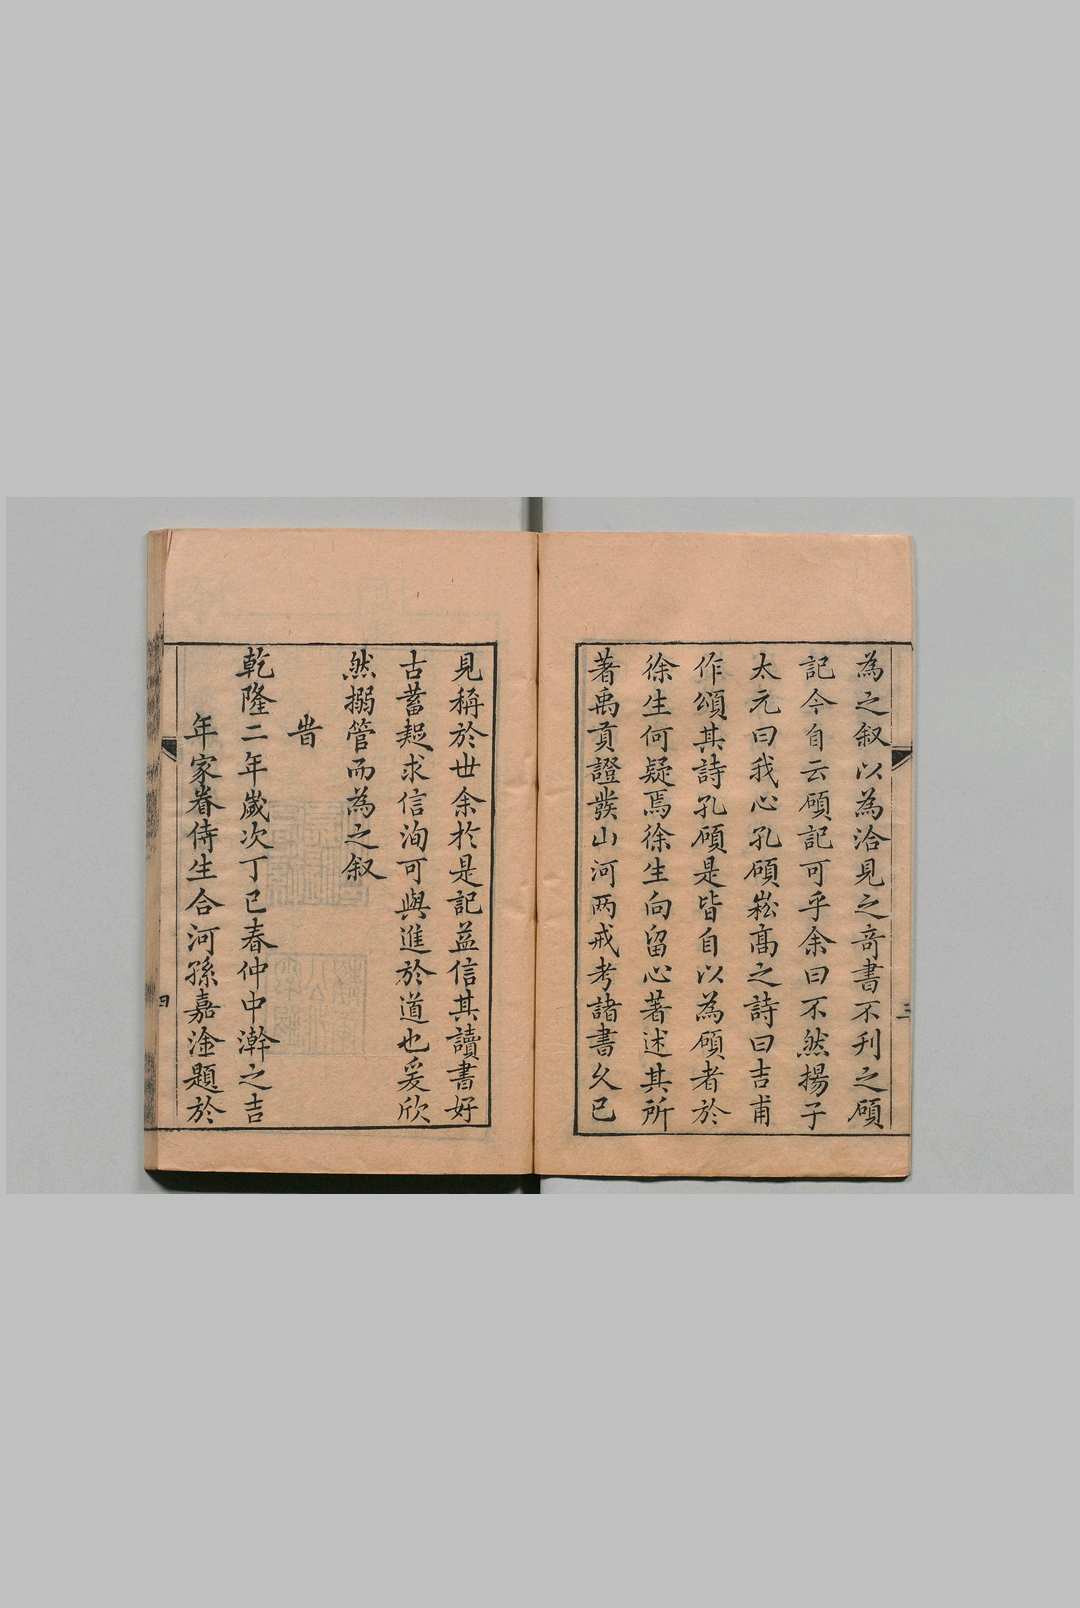 為之叙以為洽見之竒書不刋之碩
記今自云碩記可乎余曰不然揚子
太元曰我心孔碩崧髙之詩曰吉甫
作頌其詩孔碩是皆自以為碩者於
徐生何疑焉徐生向留心著述其所
著禹貢證發山河两戒考諸書久已
見稱於世余於是記益信其讀書好
古蓄疑求信洵可與進於道也爰欣
然搦管而為之叙
旹
乾隆二年歲次丁巳春仲中澣之吉
年家眷侍生合河孫嘉淦題於